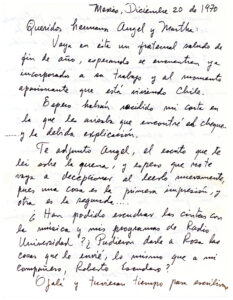 Mexico, Diciembre 20 de 1970
Queridos hermanos Angel y Martha:
Vaya en este un fraternal saludo de
fin de año, esperando se encuentren ya
incorporados a su trabajo y al momento
apasionante que está viviendo Chile.
Espero habrán recibido mi carta en
la que les avisaba que encontré el cheque
y la debida explicación.
Te adjunto Angel, el escrito que te
leí sobre la quena, y espero que no te
vaya a decepcionar al leerlo nuevamente,
pues una cosa es la primera impresión, y
otra es la segunda...
¿Han podido escuchar las cintas con
la música y mis programas de Radio
Universidad? ¿Pudieron darle a Rosa las
cosas que le envié, lo mismo que a mi
compañero, Roberto Escudero?
Ojalá y tuvieran tiempo para escribirnos